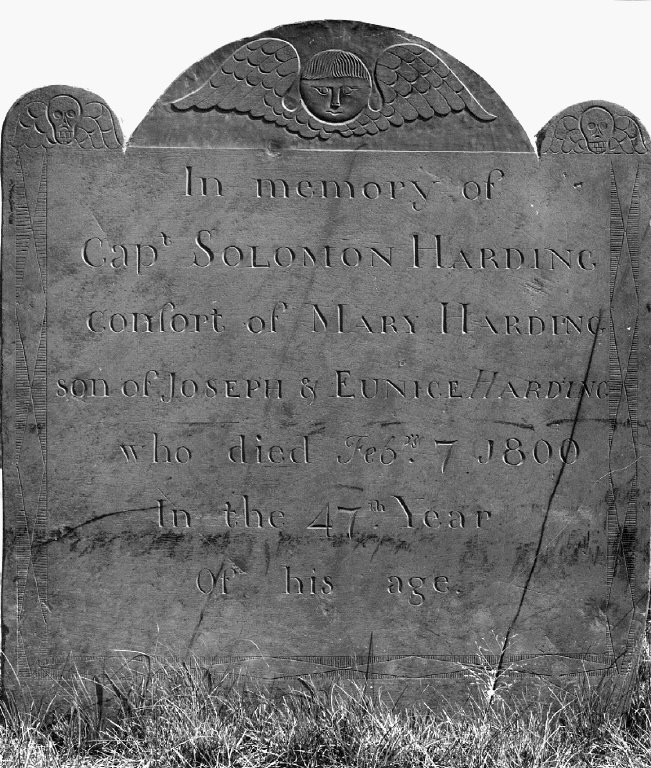 In memory of
Capt SOLOMON HARDING
conſort of MARY HARDING
son of JOSEPH & EUNICE HARDING
who died Febry. 7 1800
In the 47th. Year
Of his age.